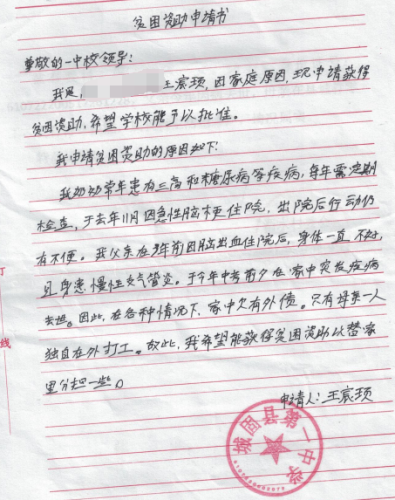 贫困资助申请书
尊敬的一中校领导:
我是 王宸颈,因家庭原因,现申请获得
贫困资助,希望学校能予以批准。
我申请贫困资助的原因如下:
我奶奶常年患有三高和糖尿病等疾病,每年需定期
检查,于去年11月因急性脑梗住院,出院后行动仍
有不便。我父亲在3年前因脑出血住院后,身体一直不好,
且身患慢性支气管炎。于今年中考前夕在家中突发疾病
去世。因此,在各种情况下,家中欠有外债。只有母亲一人
独自在外打工。故此,我希望能获得贫困资助以替家
里分担一些。
申请人:王宸颈
城固县第一中学
订
线